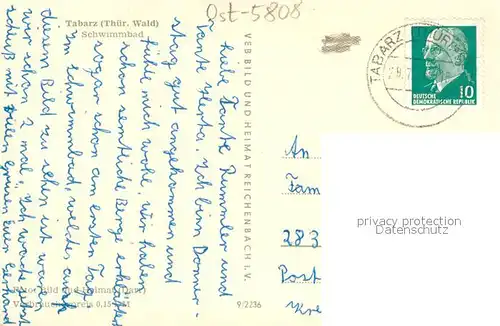 Ost-5808
Tabarz (Thür. Wald)
Schwimmbad
Liebe Tante Rummler und
Tante Herta. Ich bin Donner-
stag gut angekommen und
fühle mich wohl, wir haben
schon sämtliche Berge
sogar schon am ersten Tag
im Schwimmbad, welches auch
auf diesem Bild zu sehen ist waren
wir schon 2 mal. Ich
schluß mit vielen Grüßen Euer Gerhard
Foto: Bild und Heimat
Verbraucherpreis 0,15
9/2236
VEB BILD UND HEIMAT REICHENBACH I. V.
TABARZ
DEUTSCHE
DEMOKRATISCHE REPUBLIK
10
An
Fam
283
Post
privacy protection
Datenschutz